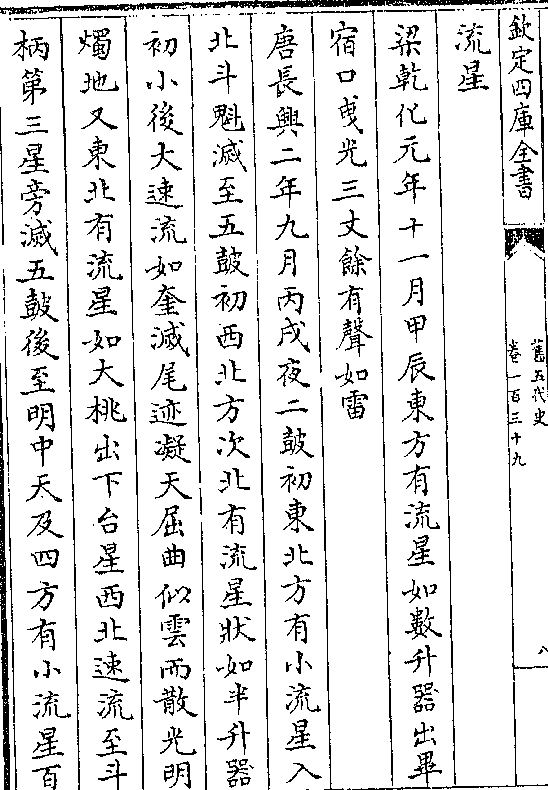 欽定四庫全書
舊五代史
卷一百三十九
八
流星
梁乾化元年十一月甲辰東方有流星如數升器出畢
宿口曵光三丈餘有聲如雷
唐長興二年九月丙戌夜二鼓初東北方有小流星入
北斗魁滅至五鼓初西北方次北有流星狀如半升器
初小後大速流如奎滅尾迹凝天屈曲似雲而散光明
燭地又東北有流星如大桃出下台星西北速流至斗
柄第三星旁滅五鼓後至明中天及四方有小流星百